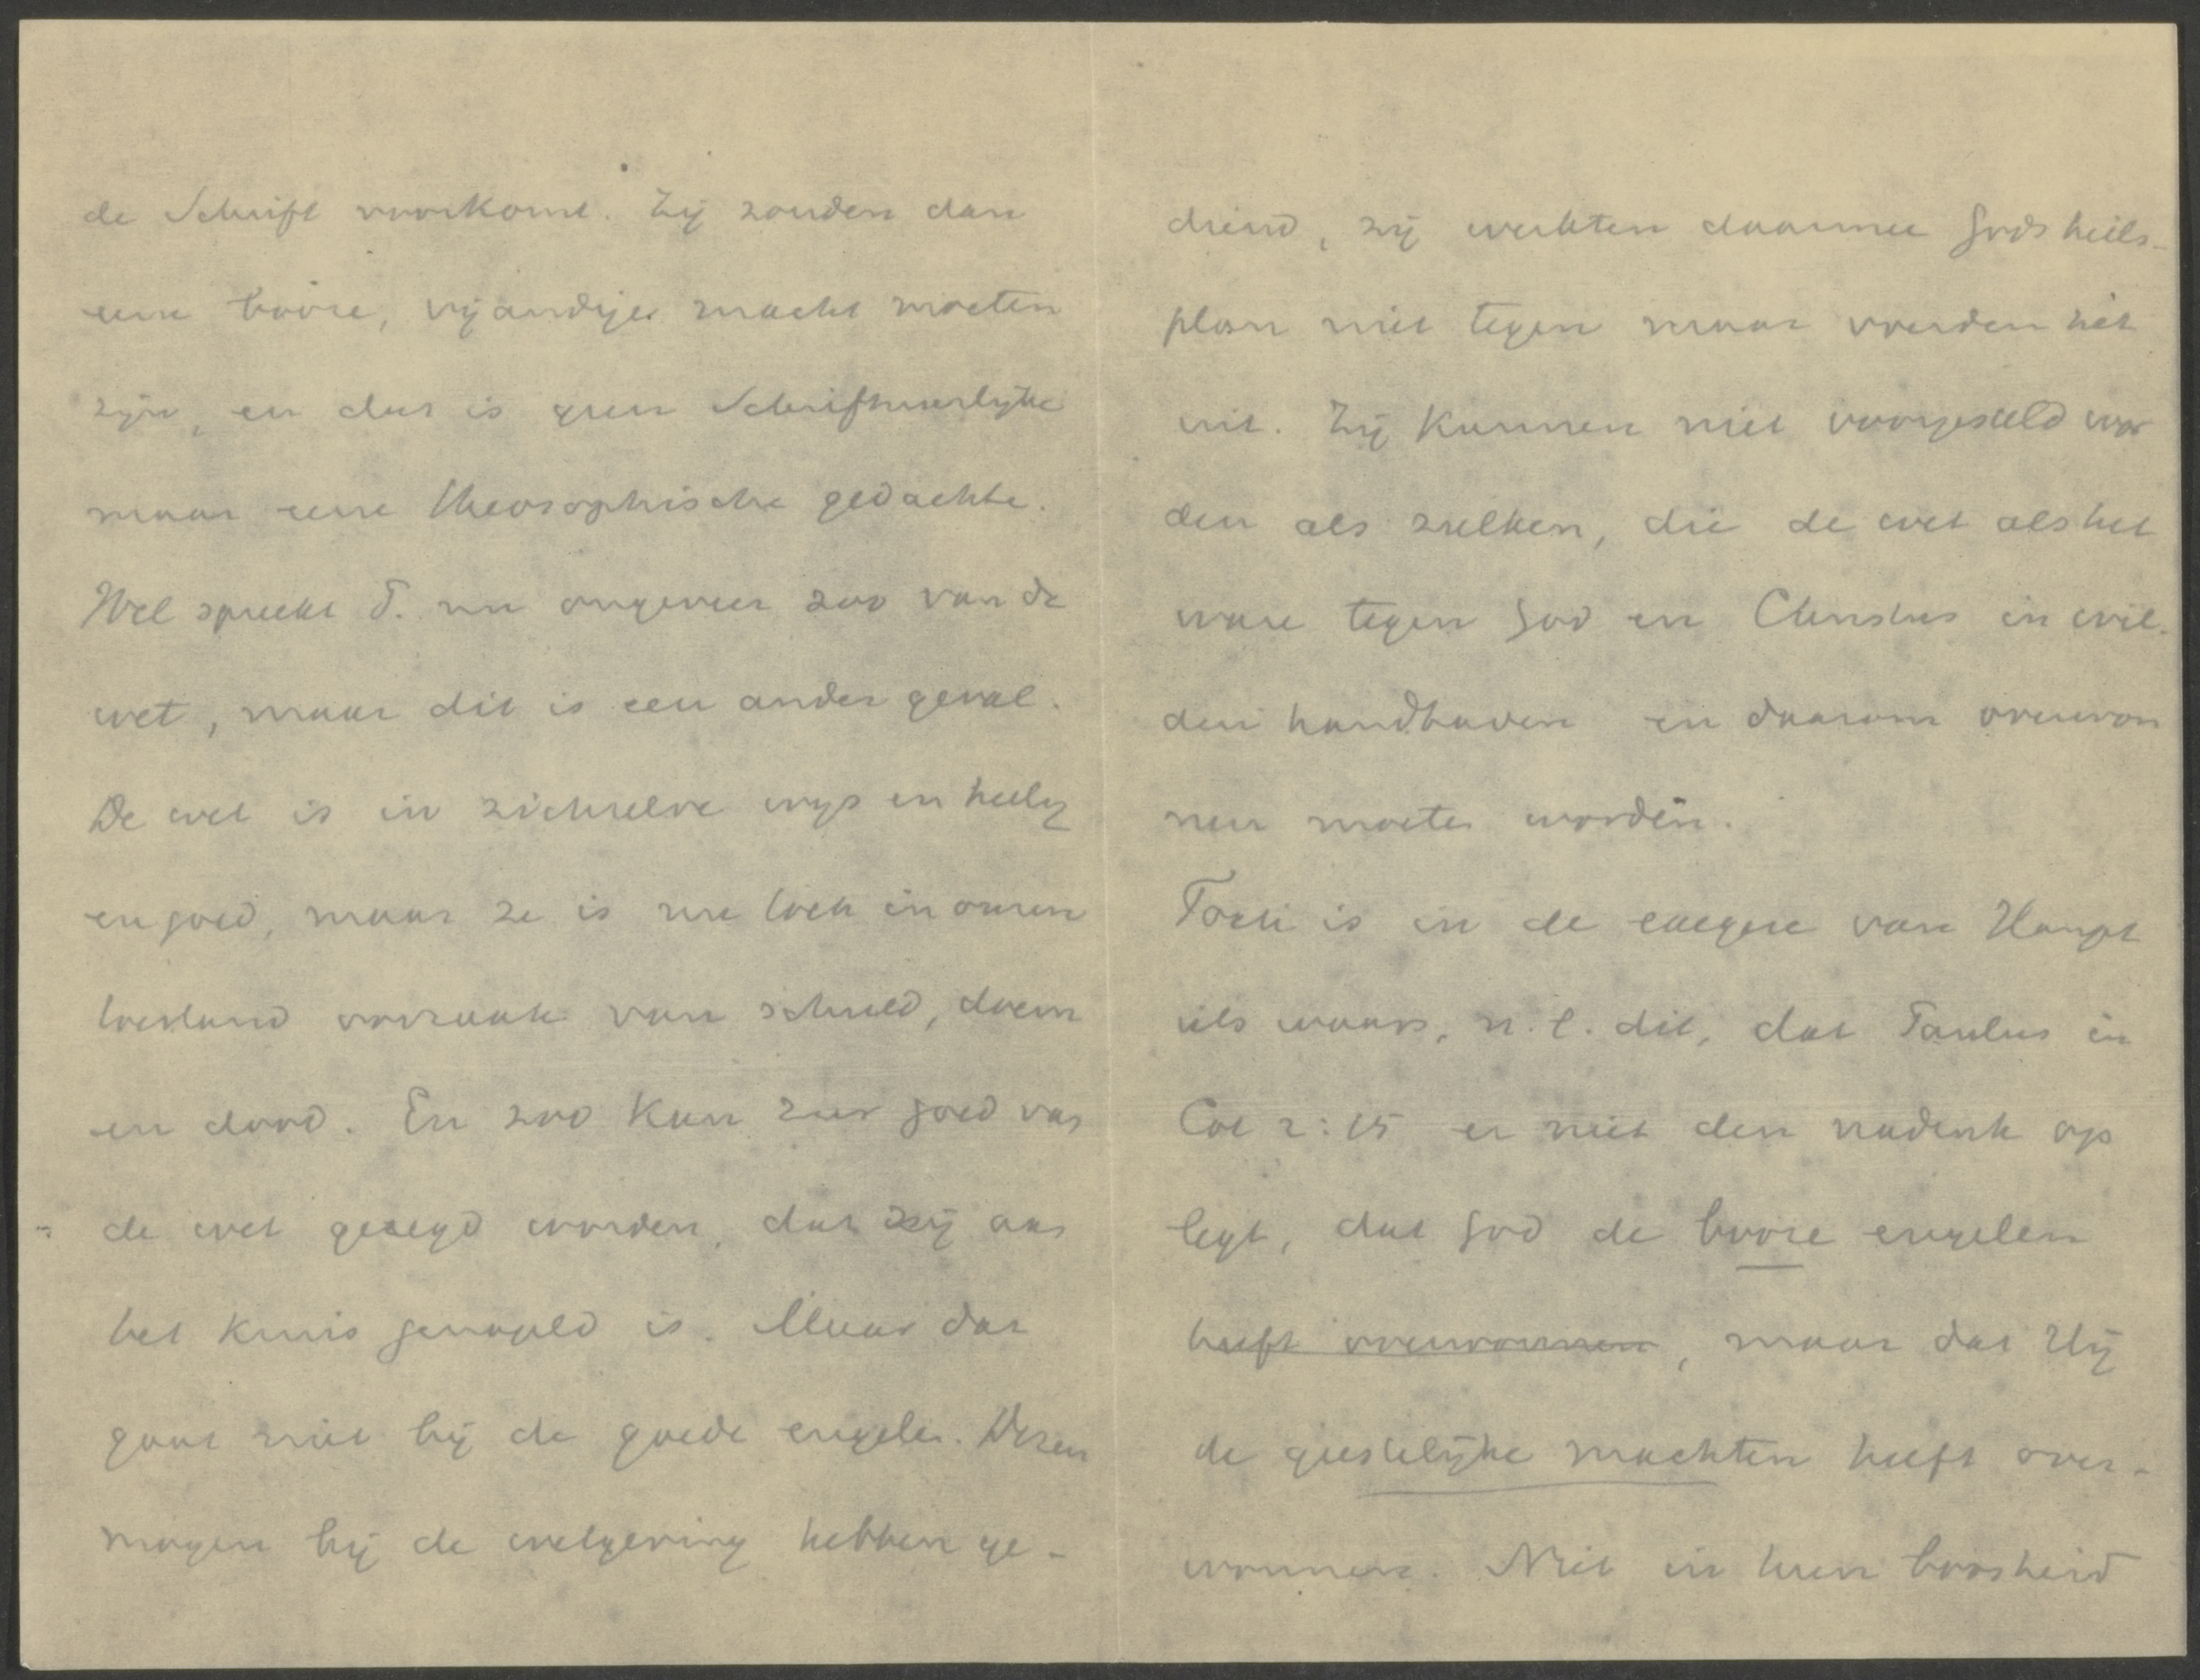 de Schrift voorkomt. Zij zouden dan
eene booze, vijandige macht moeten
zijn, en dat is geen Schriftuurlijke
maar eene theosophische gedachte.
Wel spreekt P. nu ongeveer zoo van de
wet, maar dit is een ander geval.
De wet is in zichzelve wijs en heilig
en goed, maar ze is me toch in onzen
toestand oorzaak van schuld, doem
en dood. En zoo kan zeer goed van
de wet gezegd worden, dat zij aan
het kruis genageld is. Maar dat
gaat niet bij de goede engelen. Dezen
mogen bij de wetgeving hebben ge-
diend, zij werkten daarmee Gods heils-
plan niet tegen maar voerden het
uit. Zij kunnen niet voorgesteld wor
den als zulken, die de wet als het
ware tegen God en Christus in wil-
den handhaven en daarom overwon
nen moeten worden.
Toch is in de exegese van Haupt
iets waars, n.l. dit, dat Paulus in
Col 2:15 er niet den nadruk op
legt, dat God de booze engelen
heeft overwonnen, maar dat Hij
de geestelijke machten heeft over-
wonnen. Niet in hun boosheid